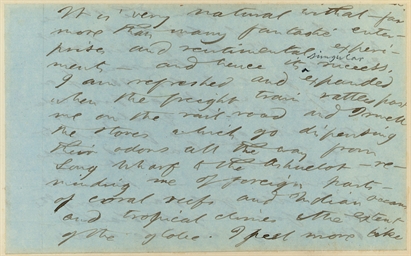 It is very natural withal - far
more than many fantastic enter-
prises and sentimental experi-
ments - and hence its singular success.
I am refreshed and expanded
when the freight train rattles past
me on the rail road and I smell
the stores which go dispensing
their odors all the way from
Long Wharf to the Ashuelot - re-
minding me of foreign parts
of coral reefs and Indian oceans
and tropical climes & the extent
of the globe. I feel more like